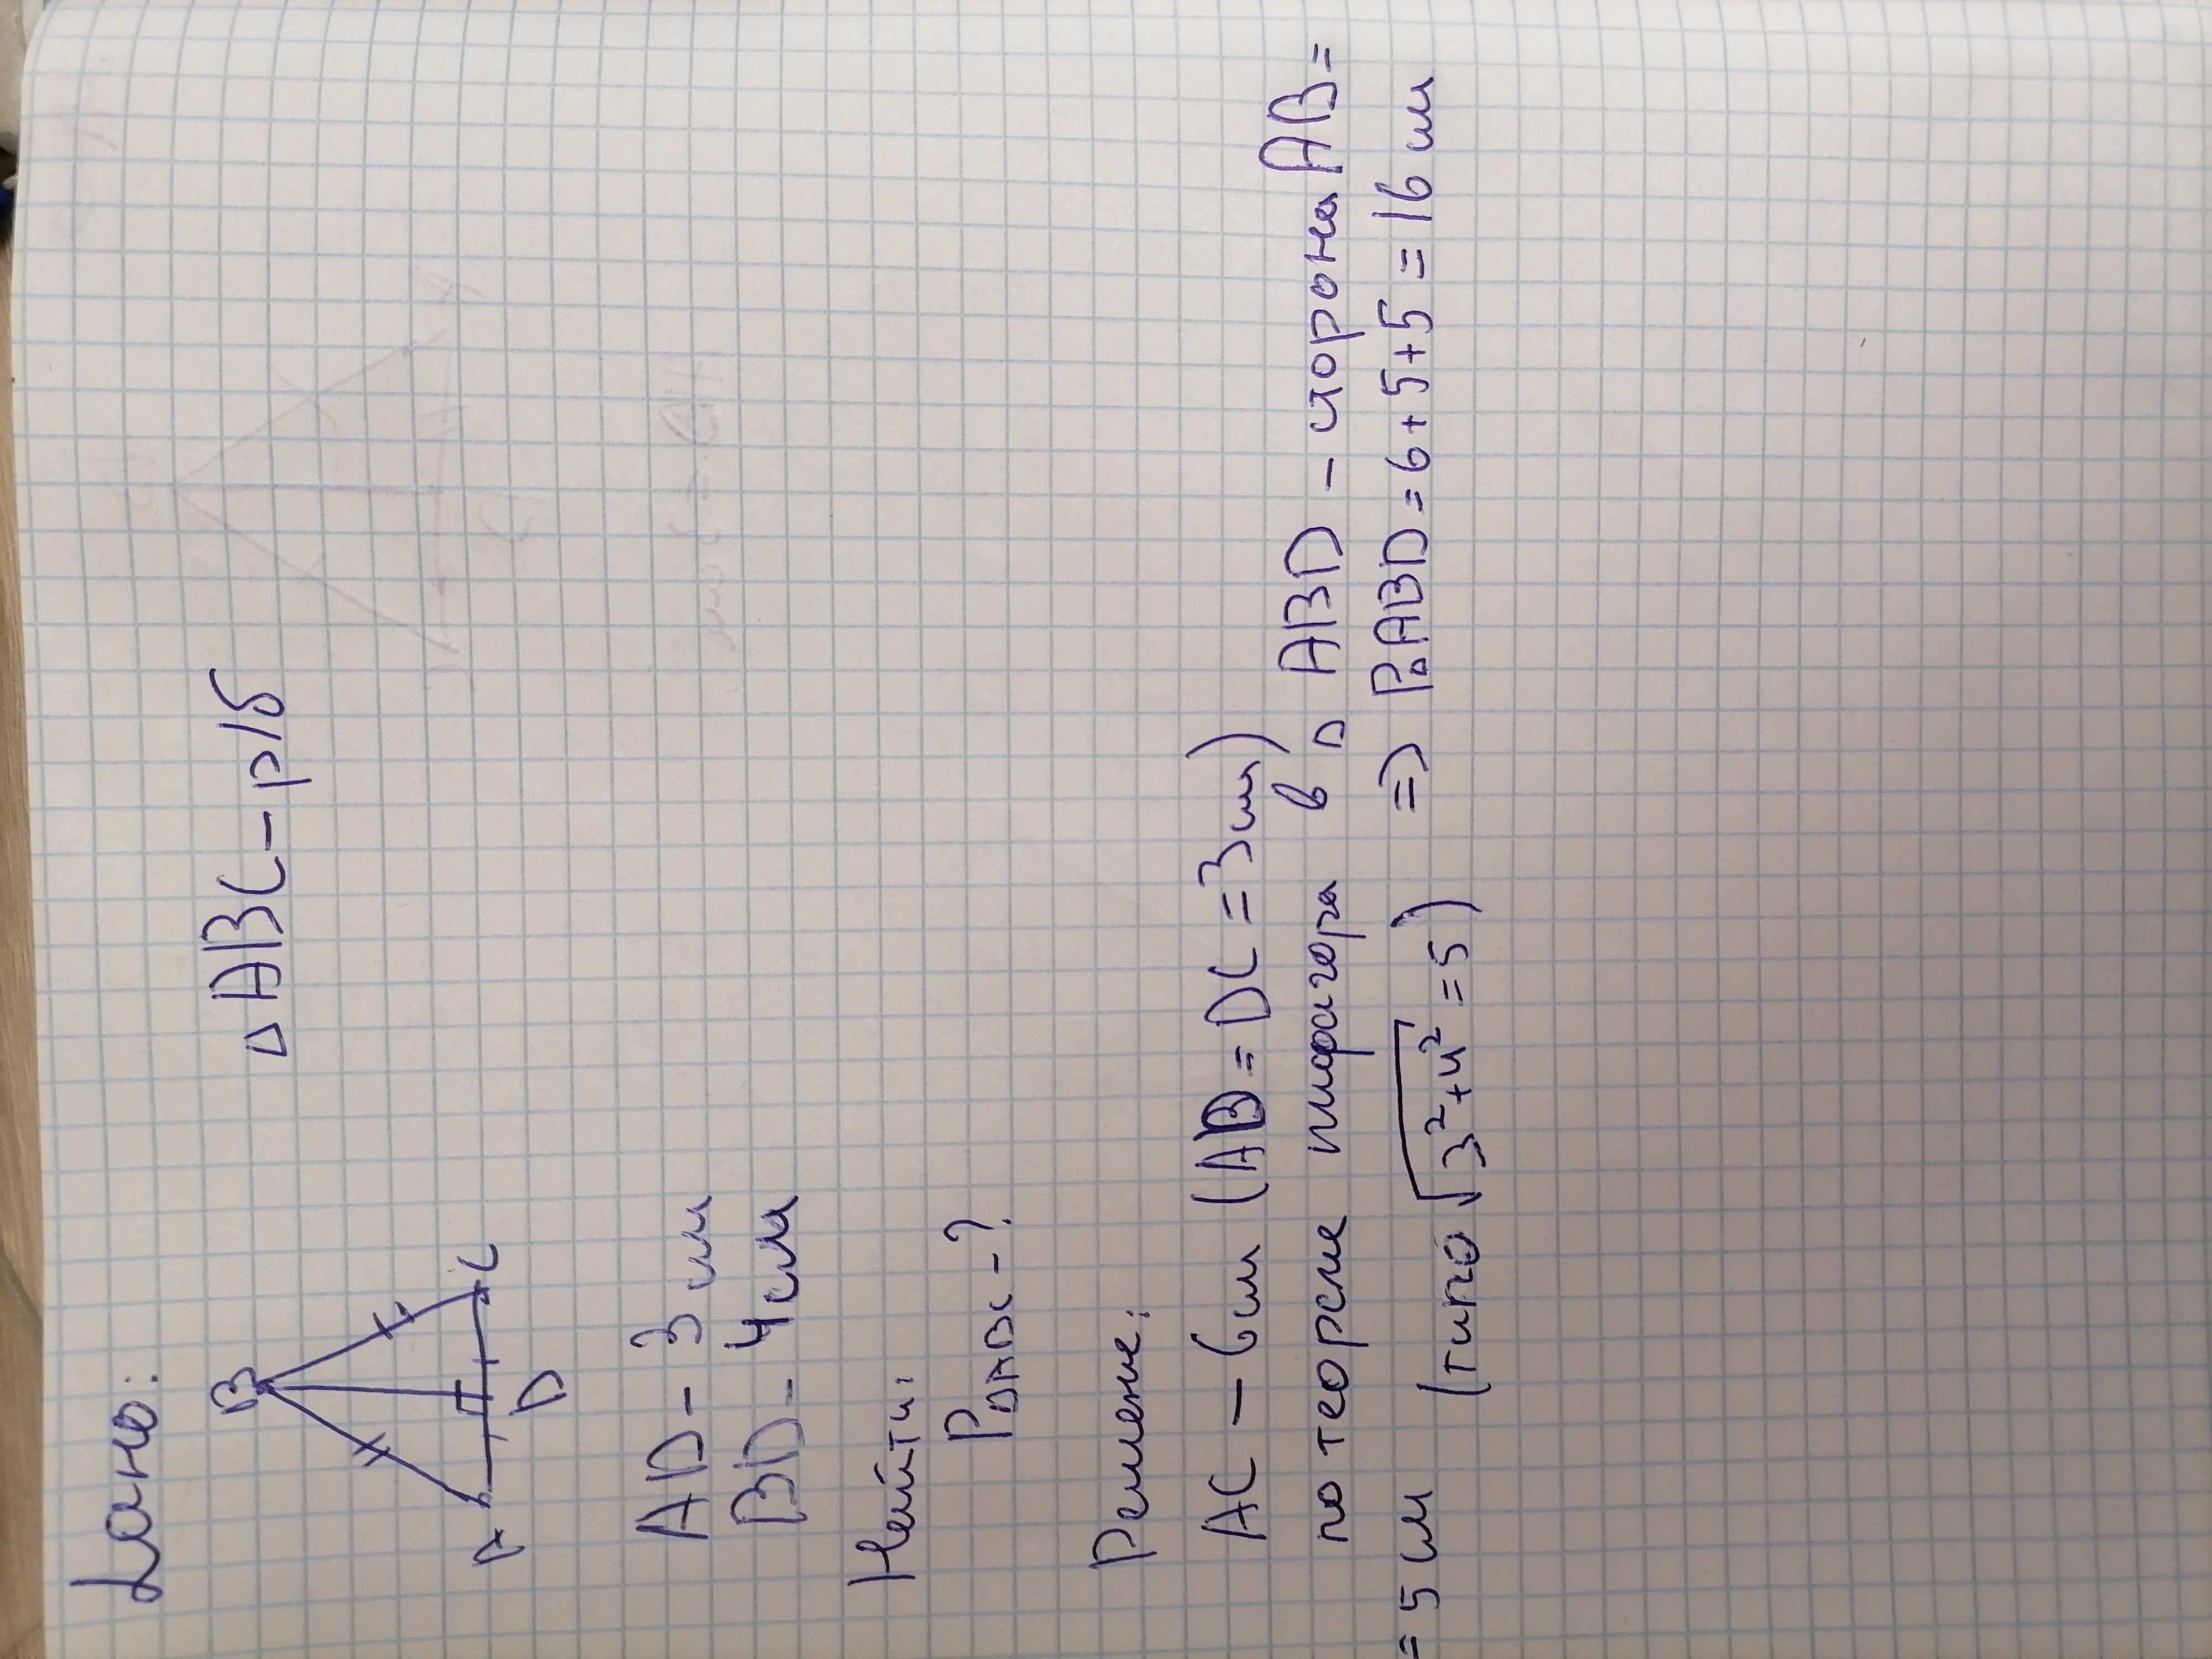 Дано:
△ABC - р/б
B
A
D
C
AD - 3 см
BD - 4 см
Найти:
P△ABC - ?
Решение:
AC - 6 см (AD = DC = 3 см)
по теореме пифагора в △ ABD - сторона AB =
= 5 см (типо √3²+4² = 5) => P△ABD = 6+5+5 = 16 см